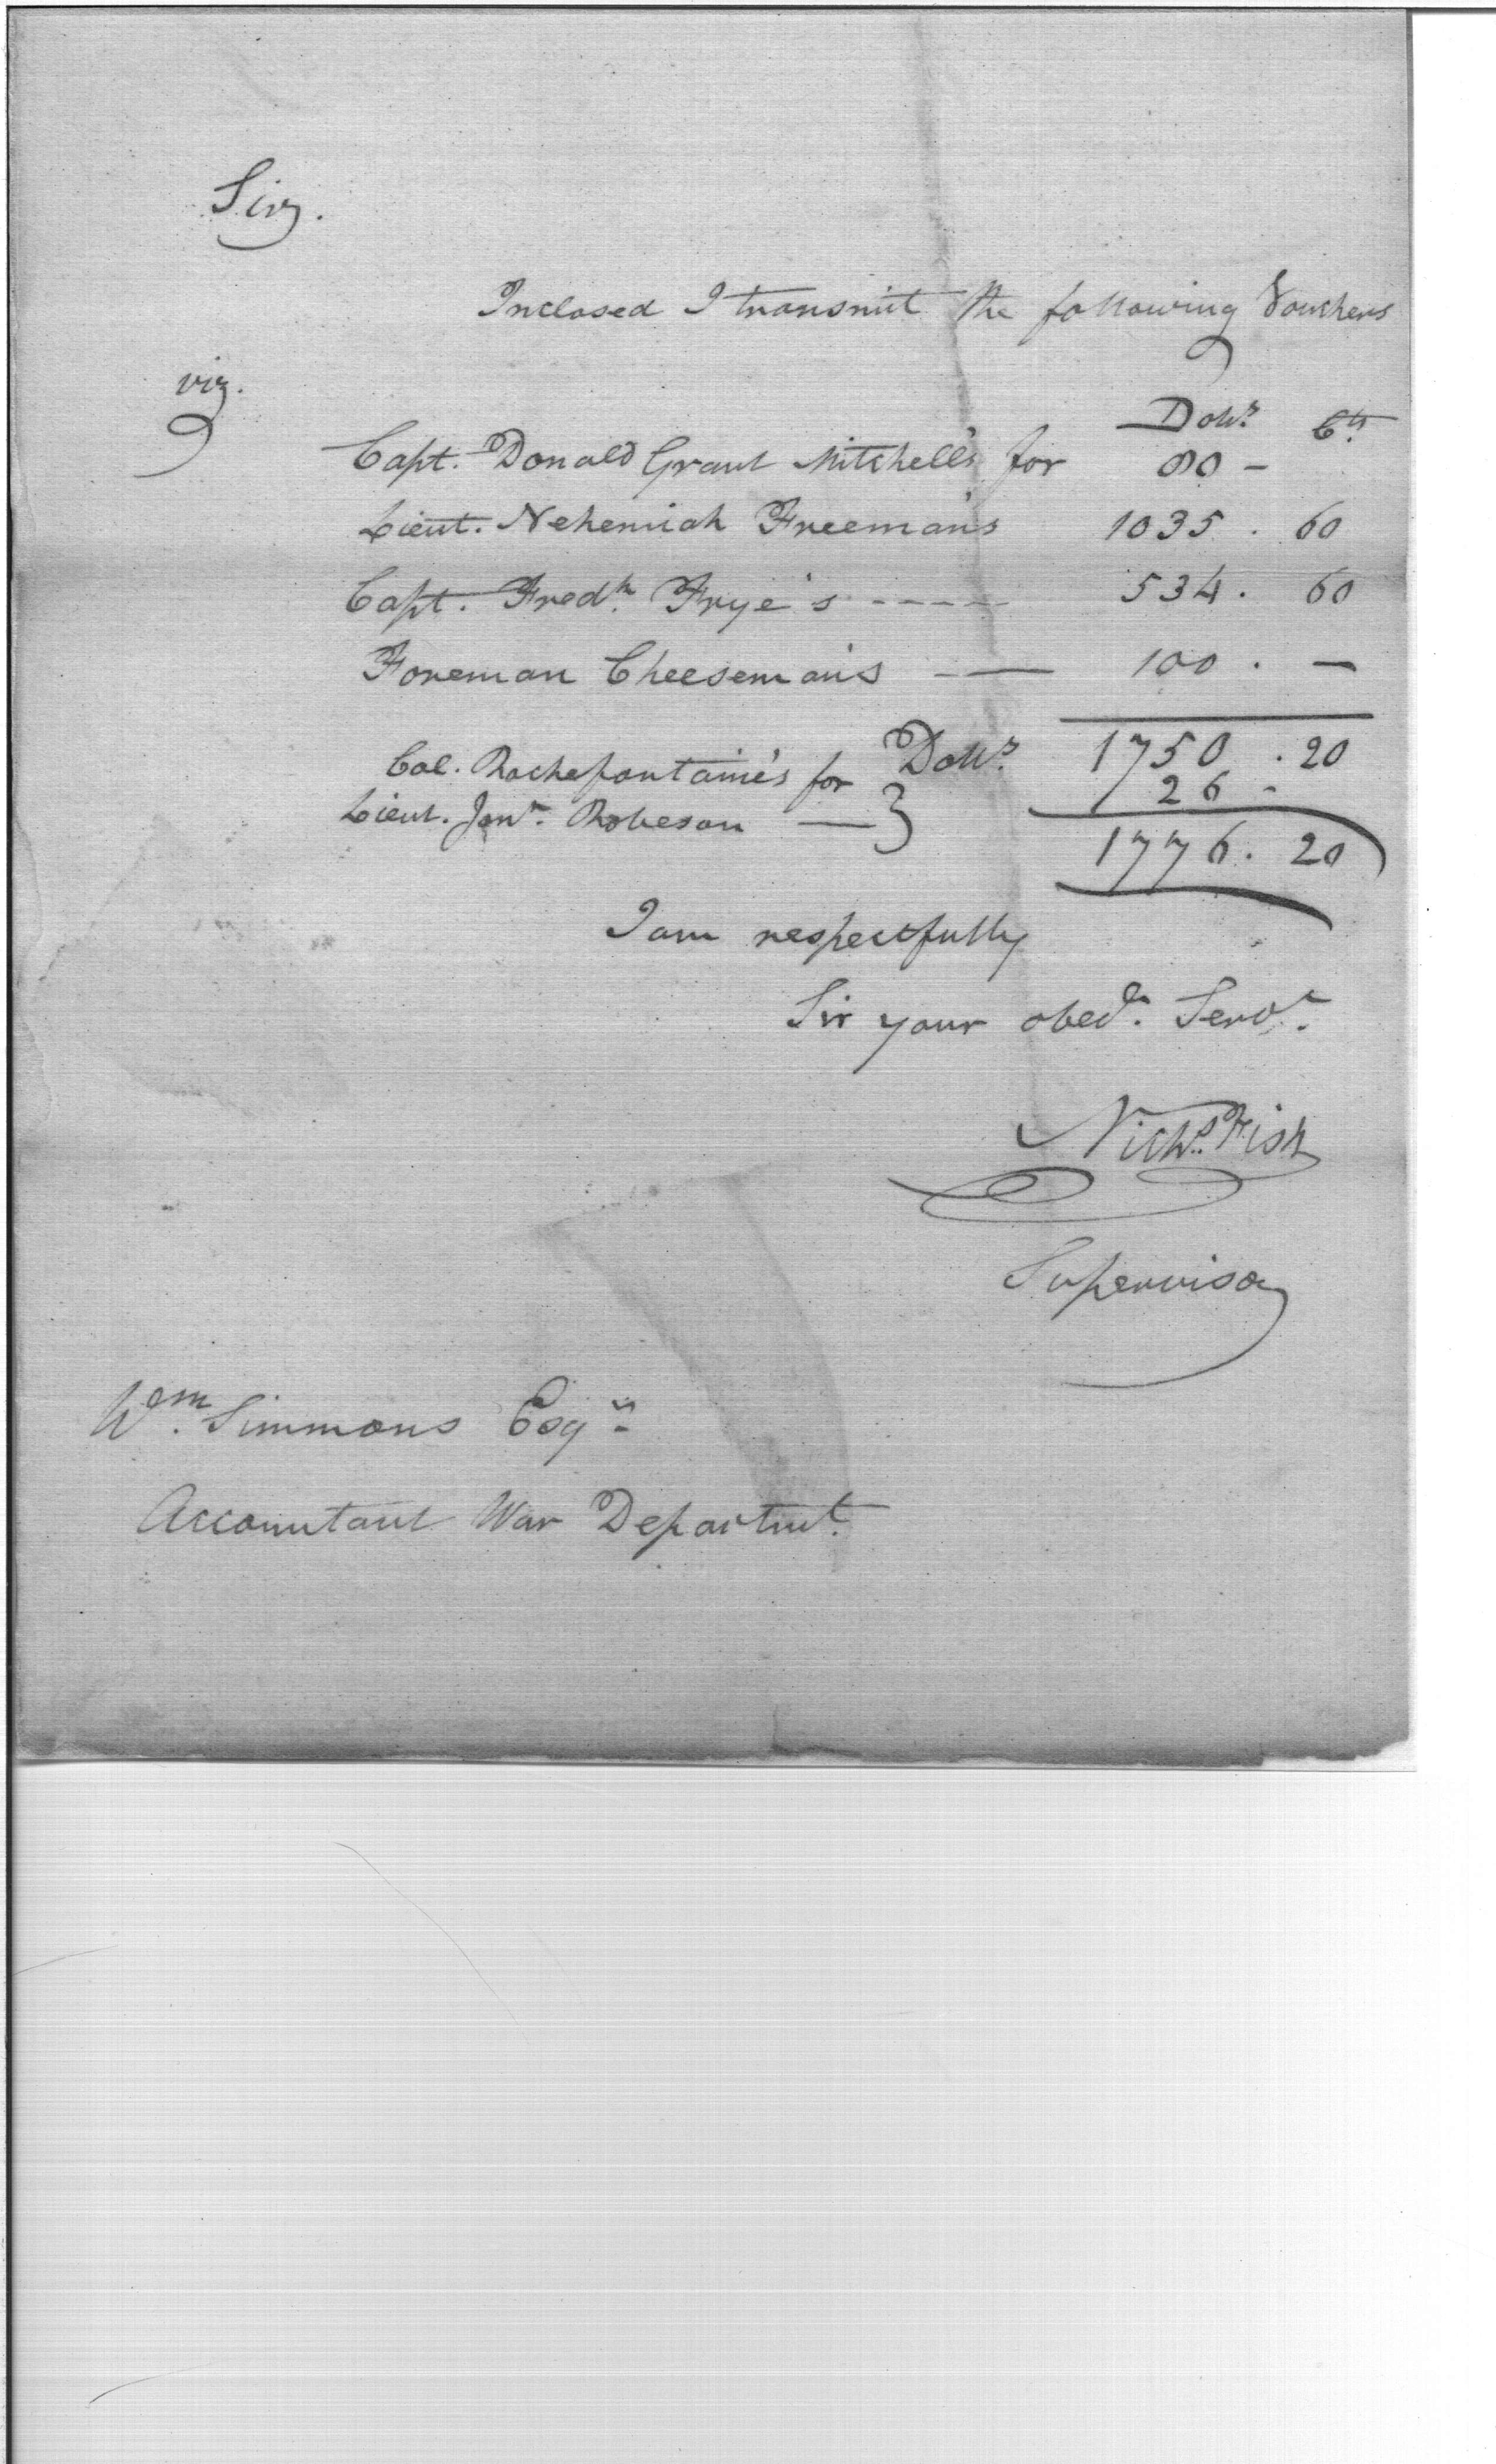 Sir.
Inclosed I transmit the following Vouchers
viz.
Dollrs Cts
Capt. Donald Grant Mitchell's for 80 -
Lieut. Nehemiah Freeman's 1035 . 60
Capt. Fredk. Frye's ----- 534 . 60
Foreman Cheeseman's —— 100 . —
Dollrs. 1750 . 20
Col. Rochefontaine's for } 26 -
Lieut. Jonn. Robeson —
1776 . 20
I am respectfully
Sir your obedt. Servt.
Nichs. Fish
Supervisor
Wm. Simmons Esqr.
Accountant War Departmt.